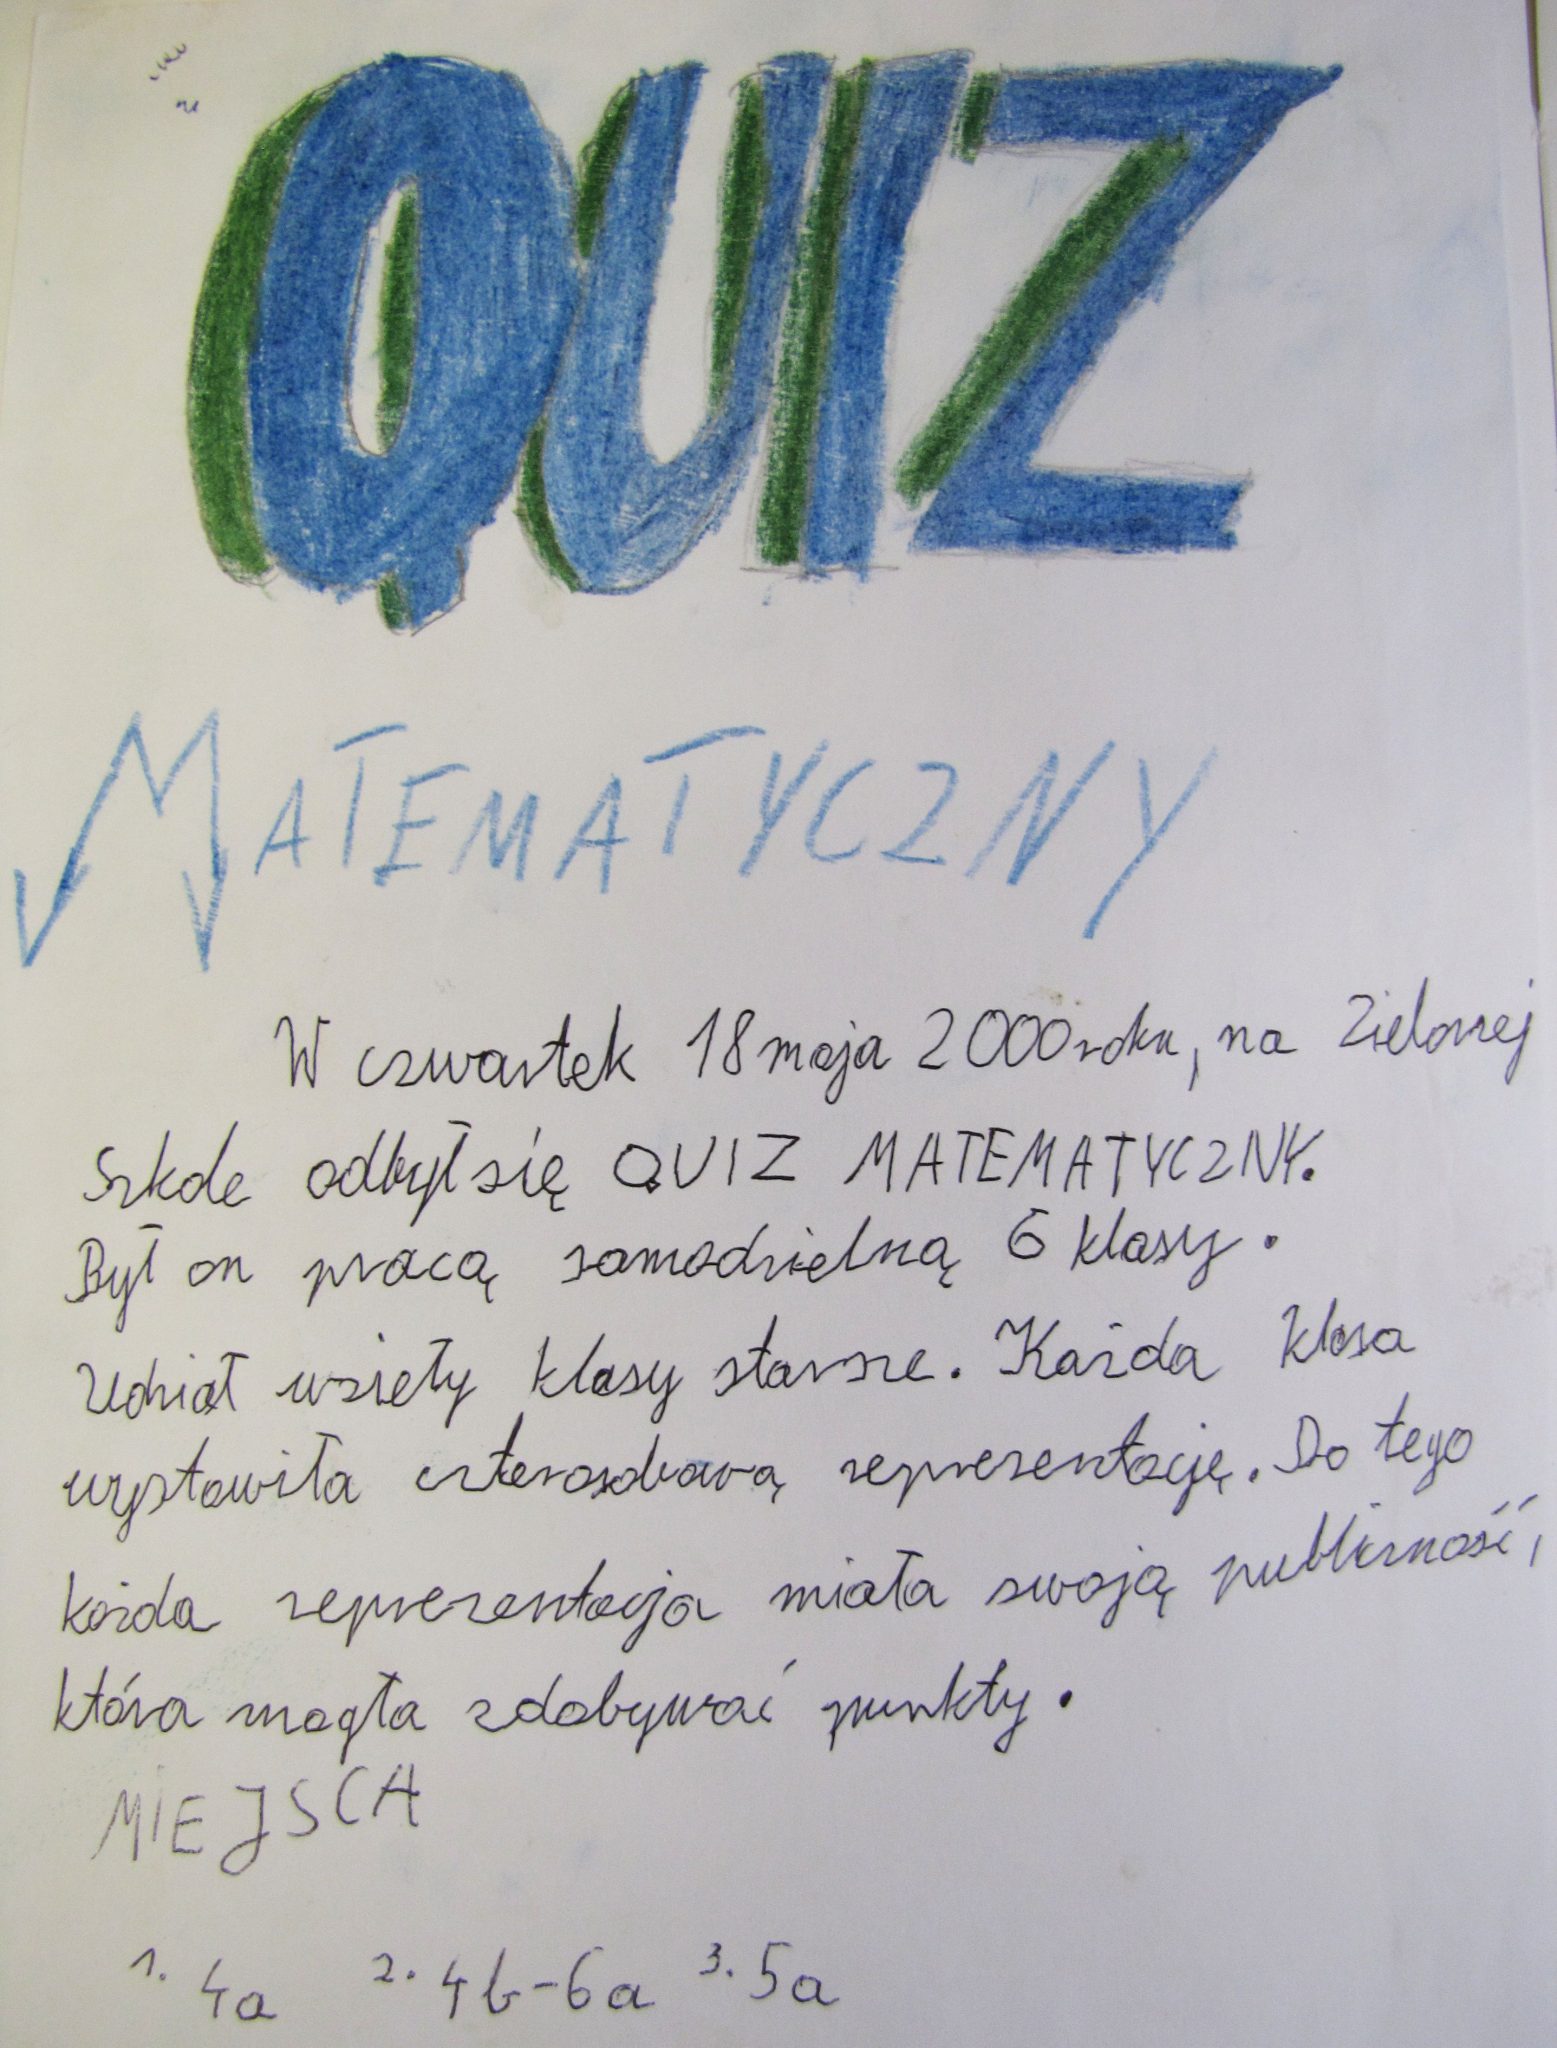 QUIZ
MATEMATYCZNY
W czwartek 18 maja 2000 roku, na Zielonej
Szkole odbył się QUIZ MATEMATYCZNY.
Był on pracą samodzielną 6 klasy.
Udział wzięły klasy starsze. Każda klasa
wystawiła czterosobową reprezentację. Do tego
każda reprezentacja miała swoją publiczność,
która mogła zdobywać punkty.
MIEJSCA
1. 4a 2. 4b-6a 3. 5a